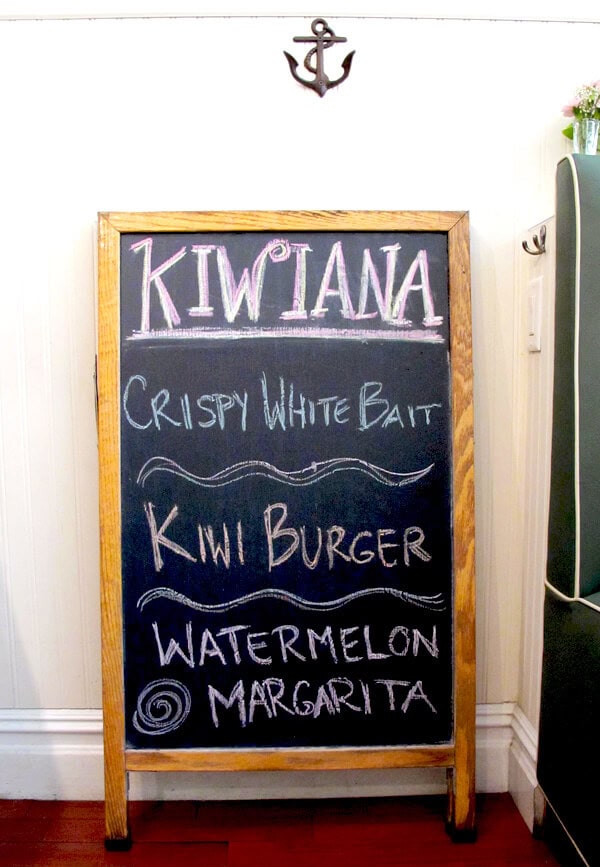 KIWIANA
CRISPY WHITE BAIT
KIWI BURGER
WATERMELON
MARGARITA